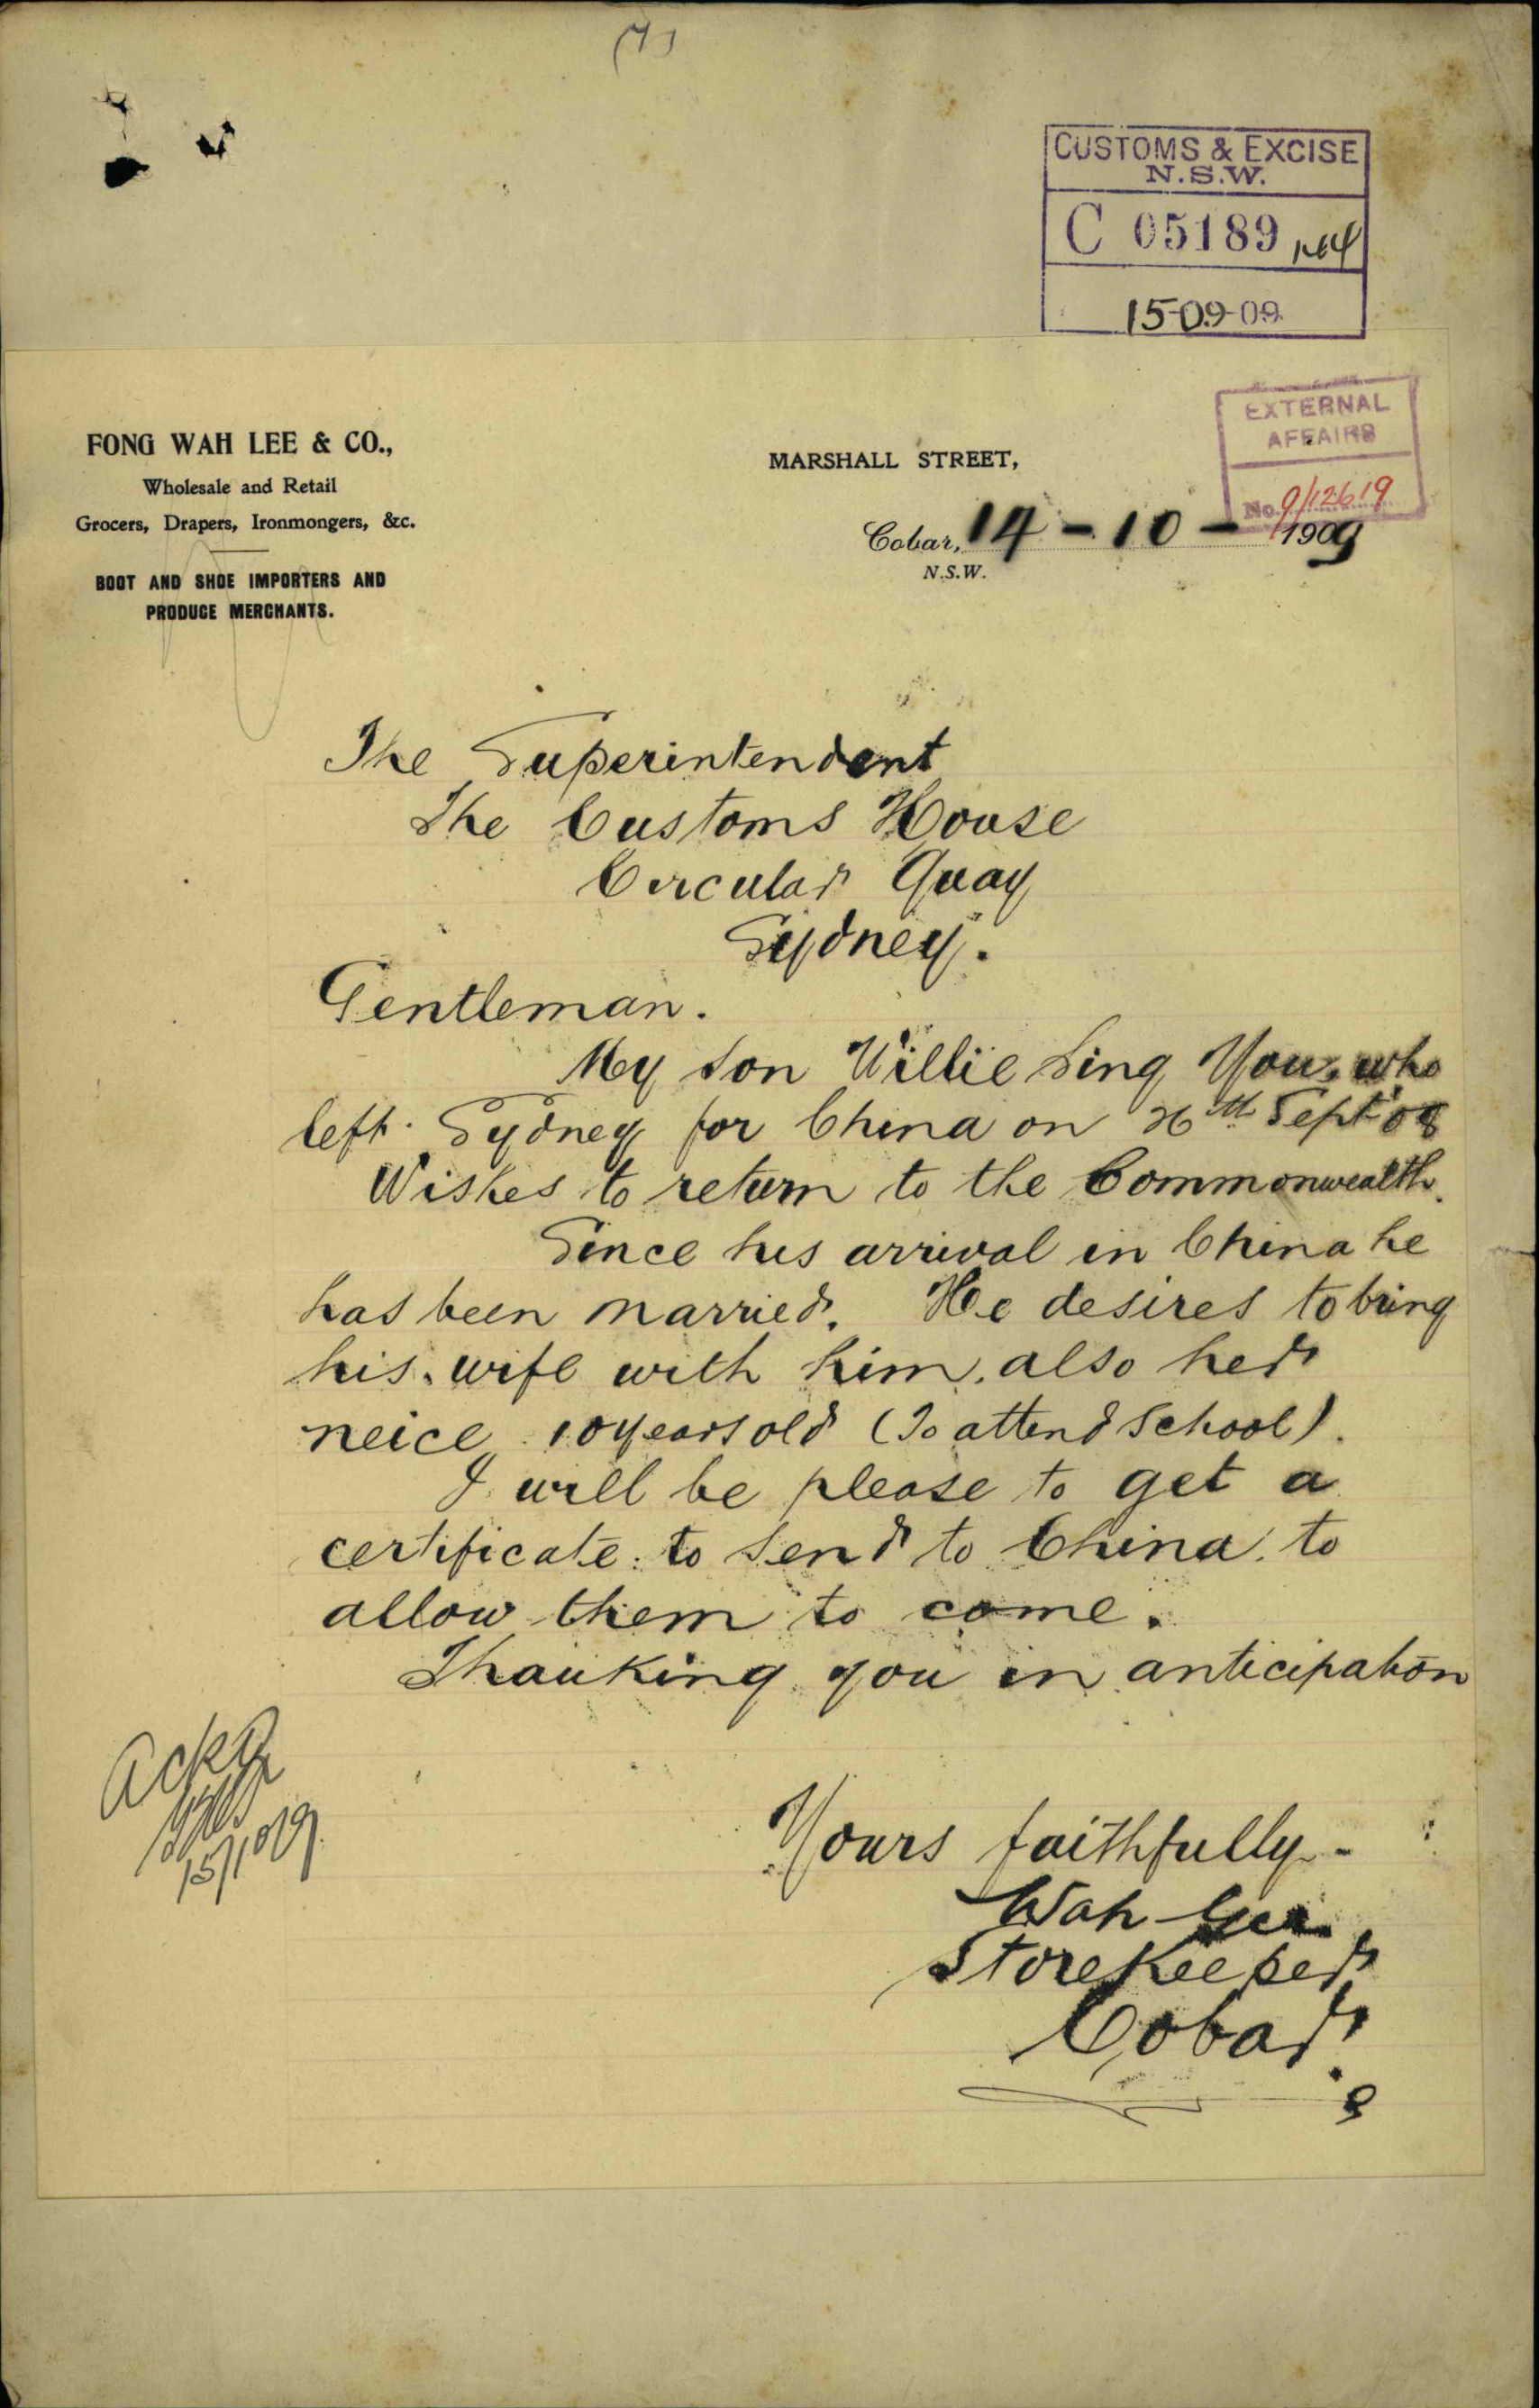 (7)
CUSTOMS & EXCISE
N.S.W.
C 05189
15-09-09
EXTERNAL
AFFAIRS
No. 9/12619
FONG WAH LEE & CO.,
Wholesale and Retail
Grocers, Drapers, Ironmongers, &c.
BOOT AND SHOE IMPORTERS AND
PRODUCE MERCHANTS.
MARSHALL STREET,
Cobar, 14 - 10 - 1909
N.S.W.
The Superintendent
The Customs House
Circular Quay
Sydney.
Gentleman.
My son Willie Sing You, who
left Sydney for China on 26th Sept '08
Wishes to return to the Commonwealth.
Since his arrival in China he
has been married. He desires to bring
his wife with him, also her
neice 10 years old (To attend School).
I will be please to get a
certificate to send to China to
allow them to come.
Thanking you in anticipation
Yours faithfully -
Wah
Storekeeper
Cobar.
Ackd
15/10/9